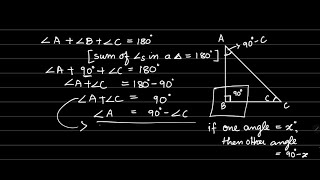 ∠A + ∠B + ∠C = 180°
[sum of ∠s in a Δ = 180°]
∠A + 90° + ∠C = 180°
∠A + ∠C = 180° - 90°
∠A + ∠C = 90°
∠A = 90° - ∠C
A
90° - C
90°
B
C
C
if one angle = x°,
then other angle
= 90° - x